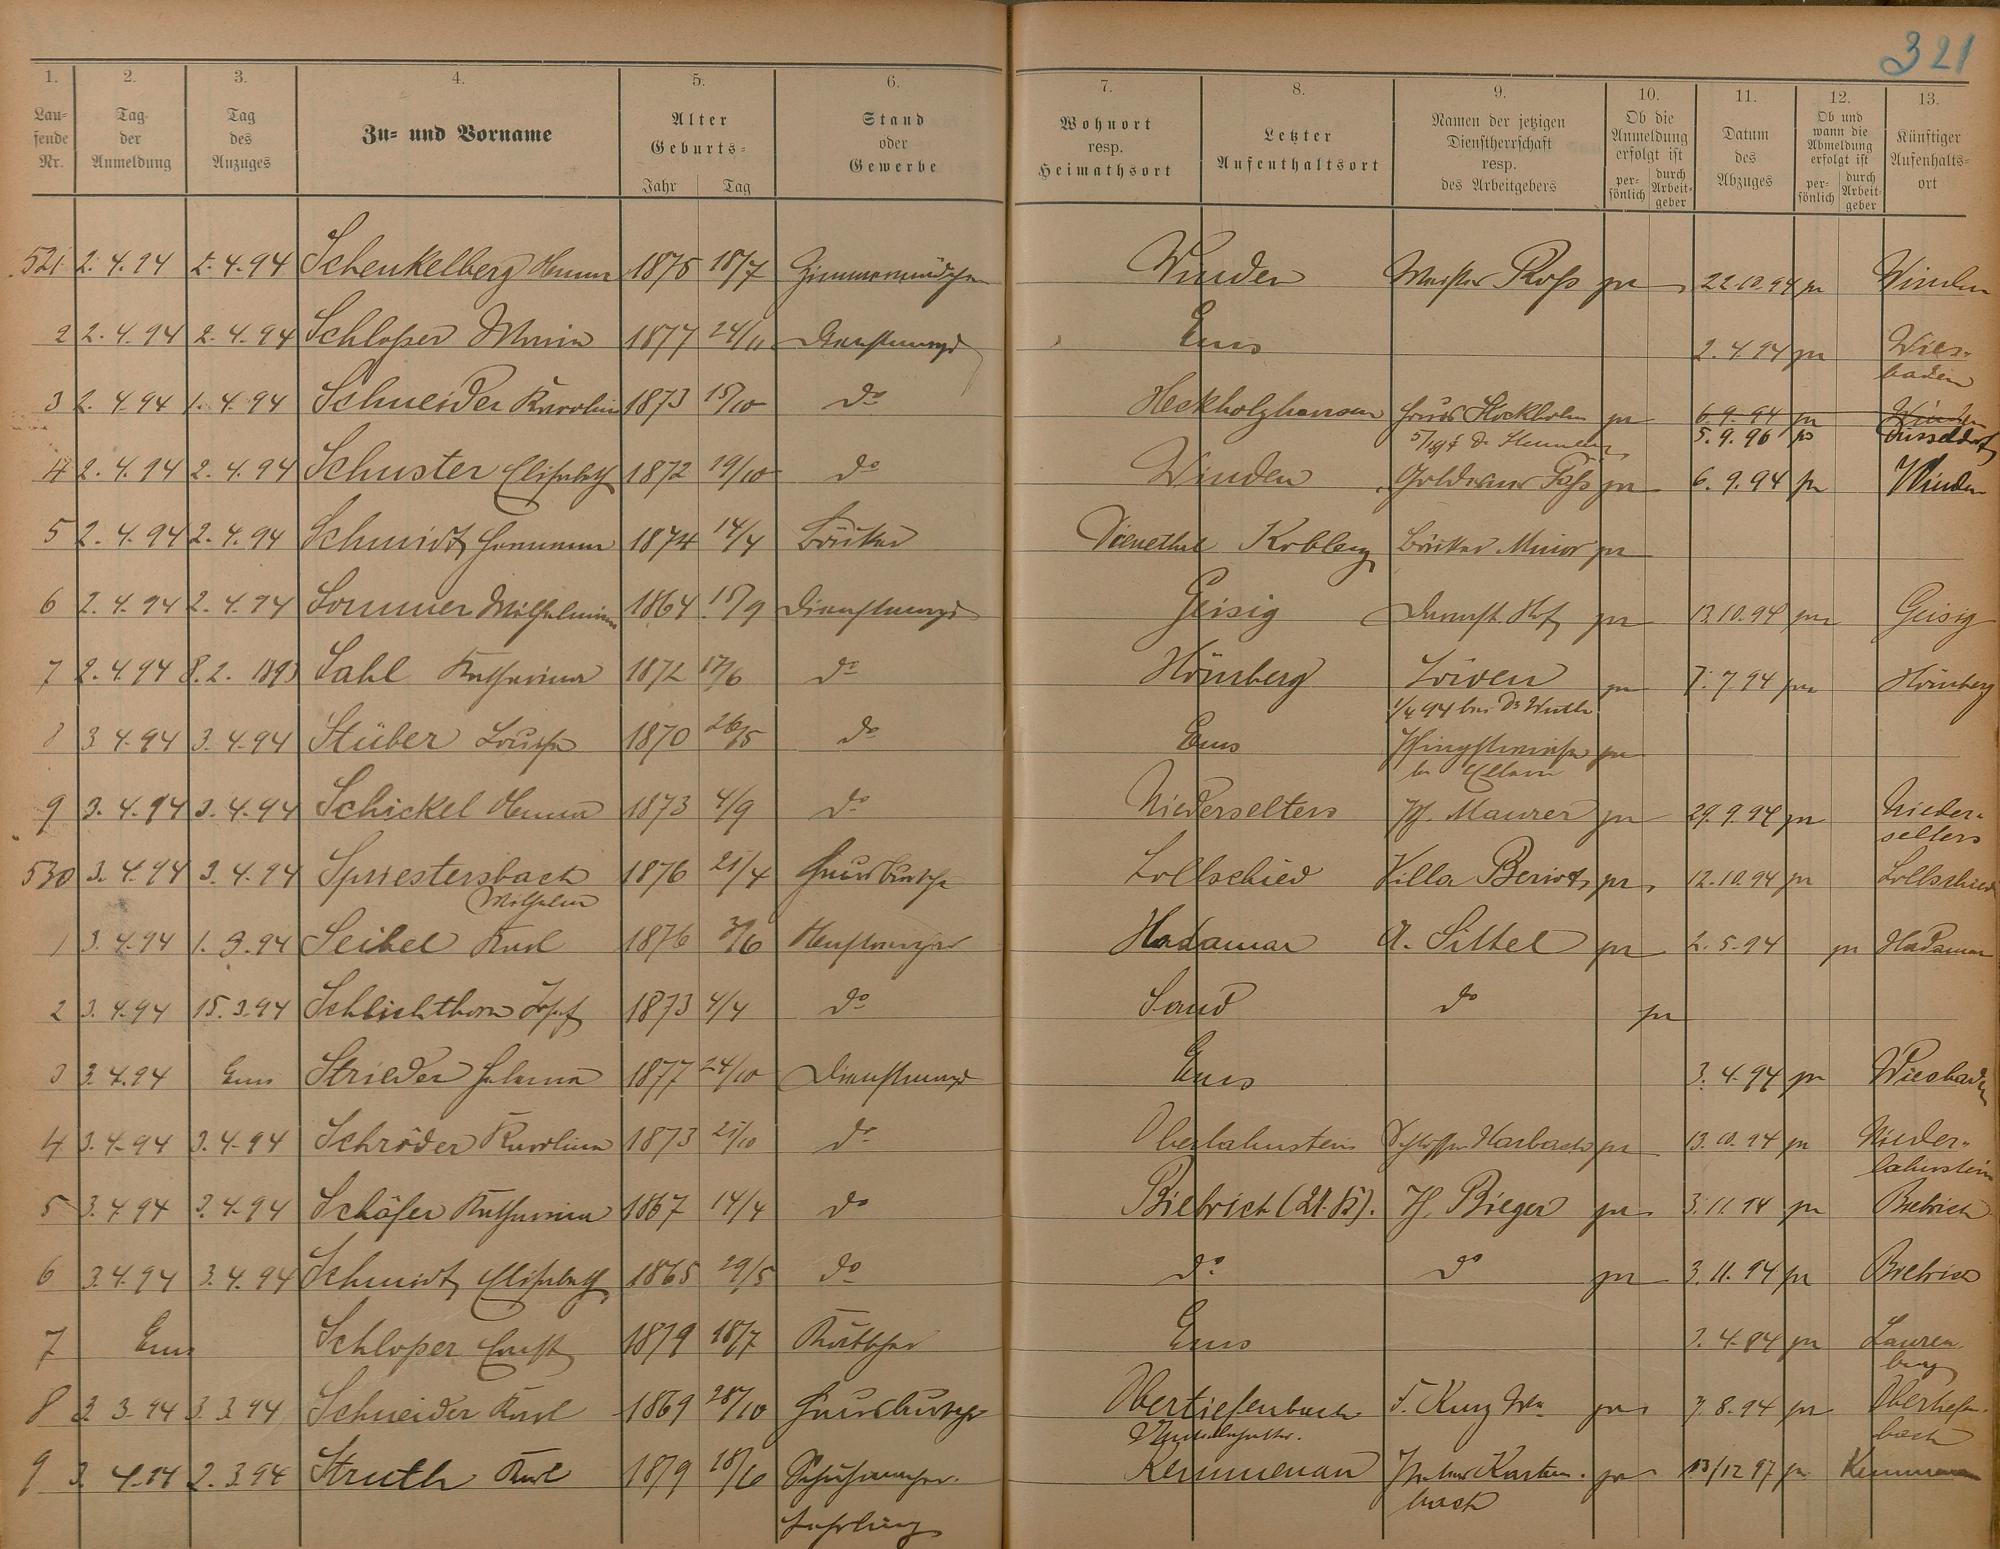 321
1. 2. 3. 4. 5. 6. 7. 8. 9. 10. 11. 12. 13.
Lau-
fende
Nr.
Tag
der
Anmeldung
Tag
des
Anzuges
Zu- und Vorname
Alter
Geburts-
Jahr Tag
Stand
oder
Gewerbe
Wohnort
resp.
Heimathsort
Letzter
Aufenthaltsort
Namen der jetzigen
Dienstherrschaft
resp.
des Arbeitgebers
Ob die
Anmeldung
erfolgt ist
per-
sönlich
durch
Arbeit-
geber
Datum
des
Abzuges
Ob und
wann die
Abmeldung
erfolgt ist
per-
sönlich
durch
Arbeit-
geber
Künftiger
Aufenthalts-
ort
521 2.4.94 2.4.94 Schenkelberg Anna 1875 18/7 Zimmermädchen Winden pr 22.10.94 pr Winden
2 2.4.94 2.4.94 Schloßer Maria 1877 24/11 Dienstmagd Ems 2.4.94 pr Wies-
baden
3 2.4.94 1.4.94 Schneider Karolina 1873 15/10 do Heckholzhausen Stockholm pr 6.9.94 pr Winden
5.9.96 ps Düsseldorf
4 2.4.94 2.4.94 Schuster Elisabeth 1872 19/10 do Winden Goldenes Faß pr 6.9.94 pr Winden
5 2.4.94 2.4.94 Schmidt Hermann 1874 14/4 Bäcker Dienethal Koblenz Bäcker Minor pr
6 2.4.94 2.4.94 Sommer Wilhelmine 1864 15/9 Dienstmagd Geisig Darmst. Hof pr 13.10.94 pr Geisig
7 2.4.94 8.2.1893 Sahl Katharina 1872 17/6 do Hömberg Löwen pr 7.7.94 pr Hömberg
8 3.4.94 3.4.94 Stüber Louise 1870 26/5 do Ems Pfingstwiese pr
9 3.4.94 3.4.94 Schickel Anna 1873 4/9 do Niederselters H. Maurer pr 29.9.94 pr Nieder-
selters
530 3.4.94 3.4.94 Spriestersbach 1876 21/4 Hausbursche Lollschied Villa Beriot pr 12.10.94 pr Lollschied
Wilhelm
1 3.4.94 1.3.94 Seibel Karl 1876 Hadamar A. Sittel pr 2.5.94 pr Hadamar
2 3.4.94 15.3.94 Schlichthorn Josef 1873 4/4 do Sand do pr
3 3.4.94 Ems Strieder Helena 1877 24/10 Dienstmagd Ems 3.4.94 pr Wiesbaden
4 3.4.94 3.4.94 Schröder Karolina 1873 21/10 do Oberlahnstein Schlosser Harbach pr 13.10.94 pr Nieder-
lahnstein
5 3.4.94 3.4.94 Schäfer Katharina 1867 14/4 do Biebrich H. Bieger pr 3.11.94 pr Biebrich
6 3.4.94 3.4.94 Schmidt Elisabeth 1865 29/5 do do do pr 3.11.94 pr Biebrich
7 Ems Schloßer Ernst 1879 18/7 Ems 3.4.94 pr Lauren
burg
8 3.3.94 3.3.94 Schneider Karl 1869 28/10 Hausbursche Obertiefenbach F. Kurz pr 7.8.94 pr Obertiefen-
bach
9 3.4.94 2.3.94 Struth Karl 1879 18/6 Schuhmacher- Kemmenau Karsten- pr 13/12 97 pr Kemmenau
lehrling bach